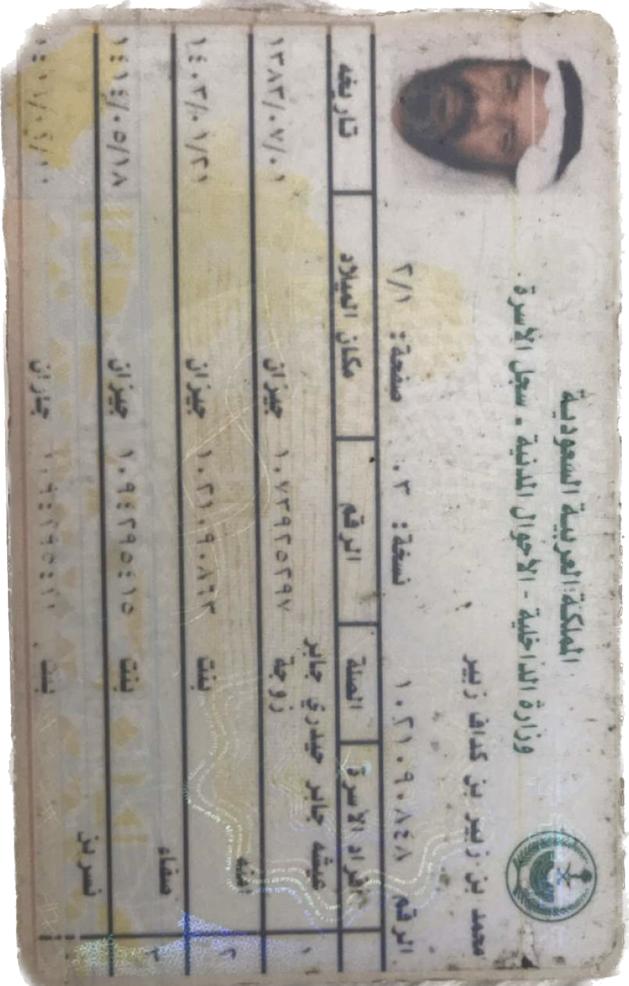 المملكة العربية السعودية
وزارة الداخلية - الأحوال المدنية - سجل الأسرة
محمد بن زبير بن كداف زبير
الرقم ١٠٢١٠٩٠٨٤٨ نسخة: ٠٣ صفحة: ٢/١
أفراد الأسرة الصلة الرقم مكان الميلاد تاريخه
عيشه جابر حيدري جابر
١ زوجة ١٠٧٣٩٢٥٢٩٧ جيزان ١٣٨٣/٠٧/٠١
٢ امنه بنت ١٠٢١٠٩٠٨٦٣ جيزان ١٤٠٣/٠١/٢١
٣ صفاء بنت ١٠٩٤٢٩٥٤١٥ جيزان ١٤١٤/٠٥/١٨
نسرين بنت